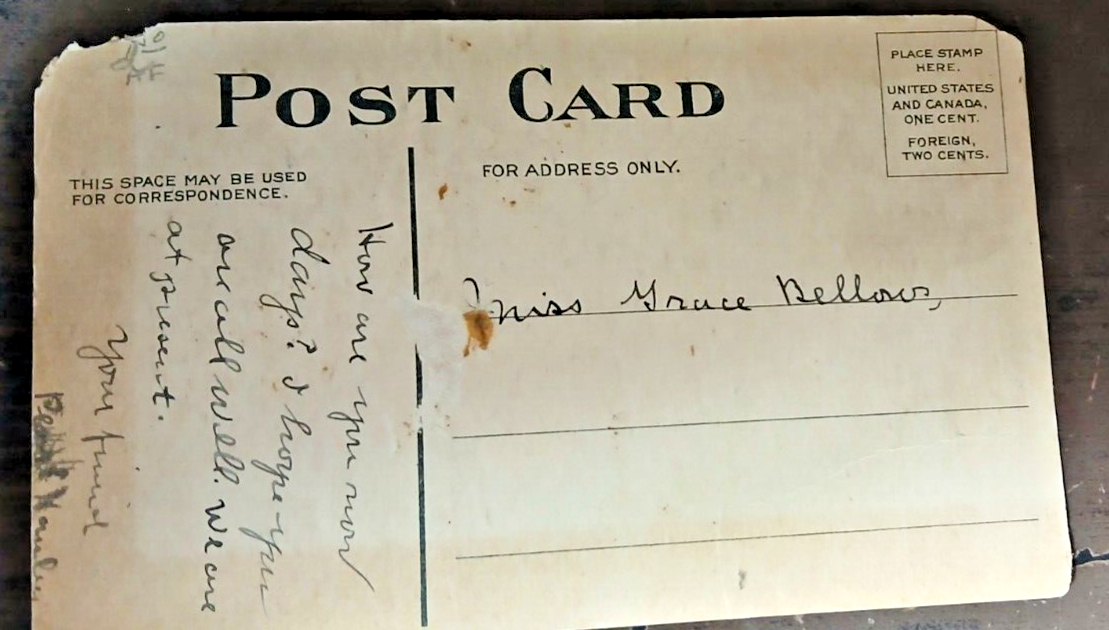 POST CARD
PLACE STAMP
HERE.
UNITED STATES
AND CANADA,
ONE CENT.
FOREIGN,
TWO CENTS.
THIS SPACE MAY BE USED
FOR CORRESPONDENCE.
FOR ADDRESS ONLY.
How are you now
days? I hope you
are all well. We are
at present.
Your friend
Miss Grace Bellows,